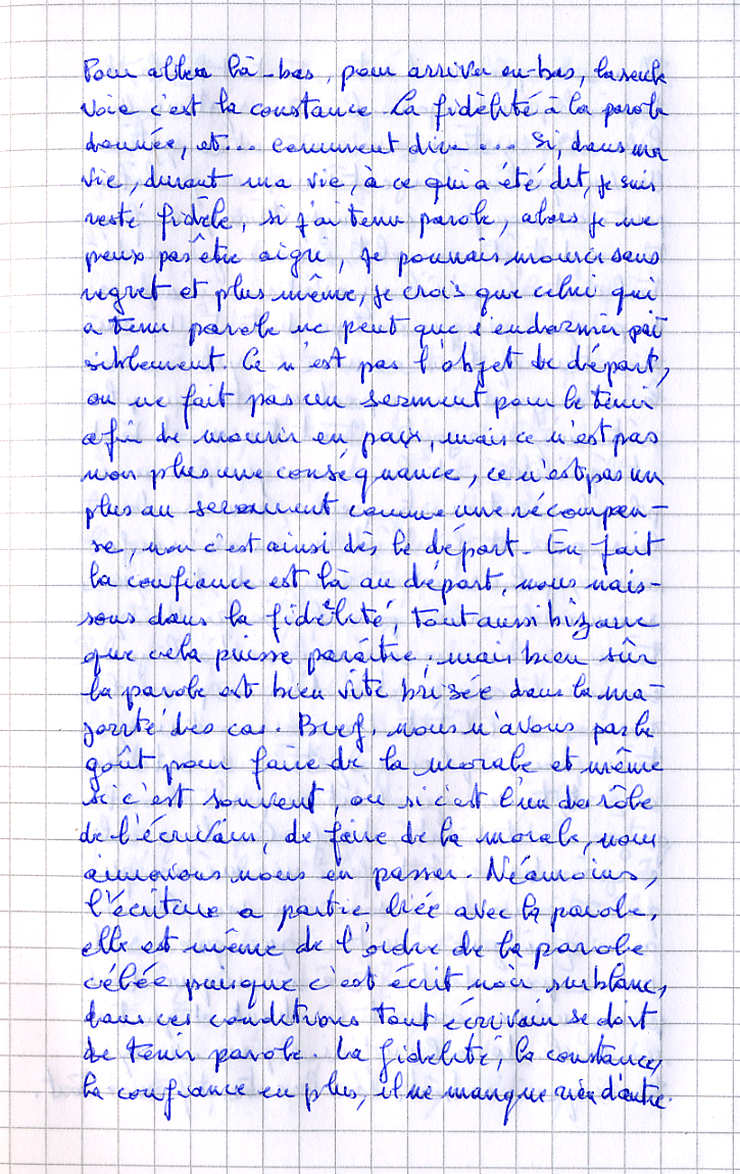 Pour aller là-bas, pour arriver en-bas, la seule
voie c'est la constance. La fidèlité à la parole
donnée, et... comment dire... Si, dans ma
vie, durant ma vie, à ce qui a été dit, je suis
resté fidèle, si j'ai tenu parole, alors je ne
peux pas être aigri, je pourrais mourir sans
regret et plus même, je crois que celui qui
a tenu parole ne peut que s'endormir pai
siblement. Ce n'est pas l'objet de départ,
on ne fait pas un serment pour le tenir
afin de mourir en paix, mais ce n'est pas
non plus une conséquance, ce n'est pas un
plus au serment comme une récompen-
se, non c'est ainsi dès le départ. En fait
la confiance est là au départ, nous nais-
sons dans la fidèlité, tout aussi bizarre
que cela puisse paraître, mais bien sûr
la parole est bien vite brisée dans la ma-
jorité des cas. Bref, nous n'avons pas le
goût pour faire de la morale et même
si c'est souvent, ou si c'est l'un des rôle
de l'écrivain, de faire de la morale, nous
aimerions nous en passer. Néamoins,
l'écriture a partie liée avec la parole,
elle est même de l'ordre de la parole
célée puisque c'est écrit noir sur blanc,
dans ces conditions tout écrivain se doit
de tenir parole. La fidelité, la constance,
la confiance en plus, il ne manque rien d'autre.